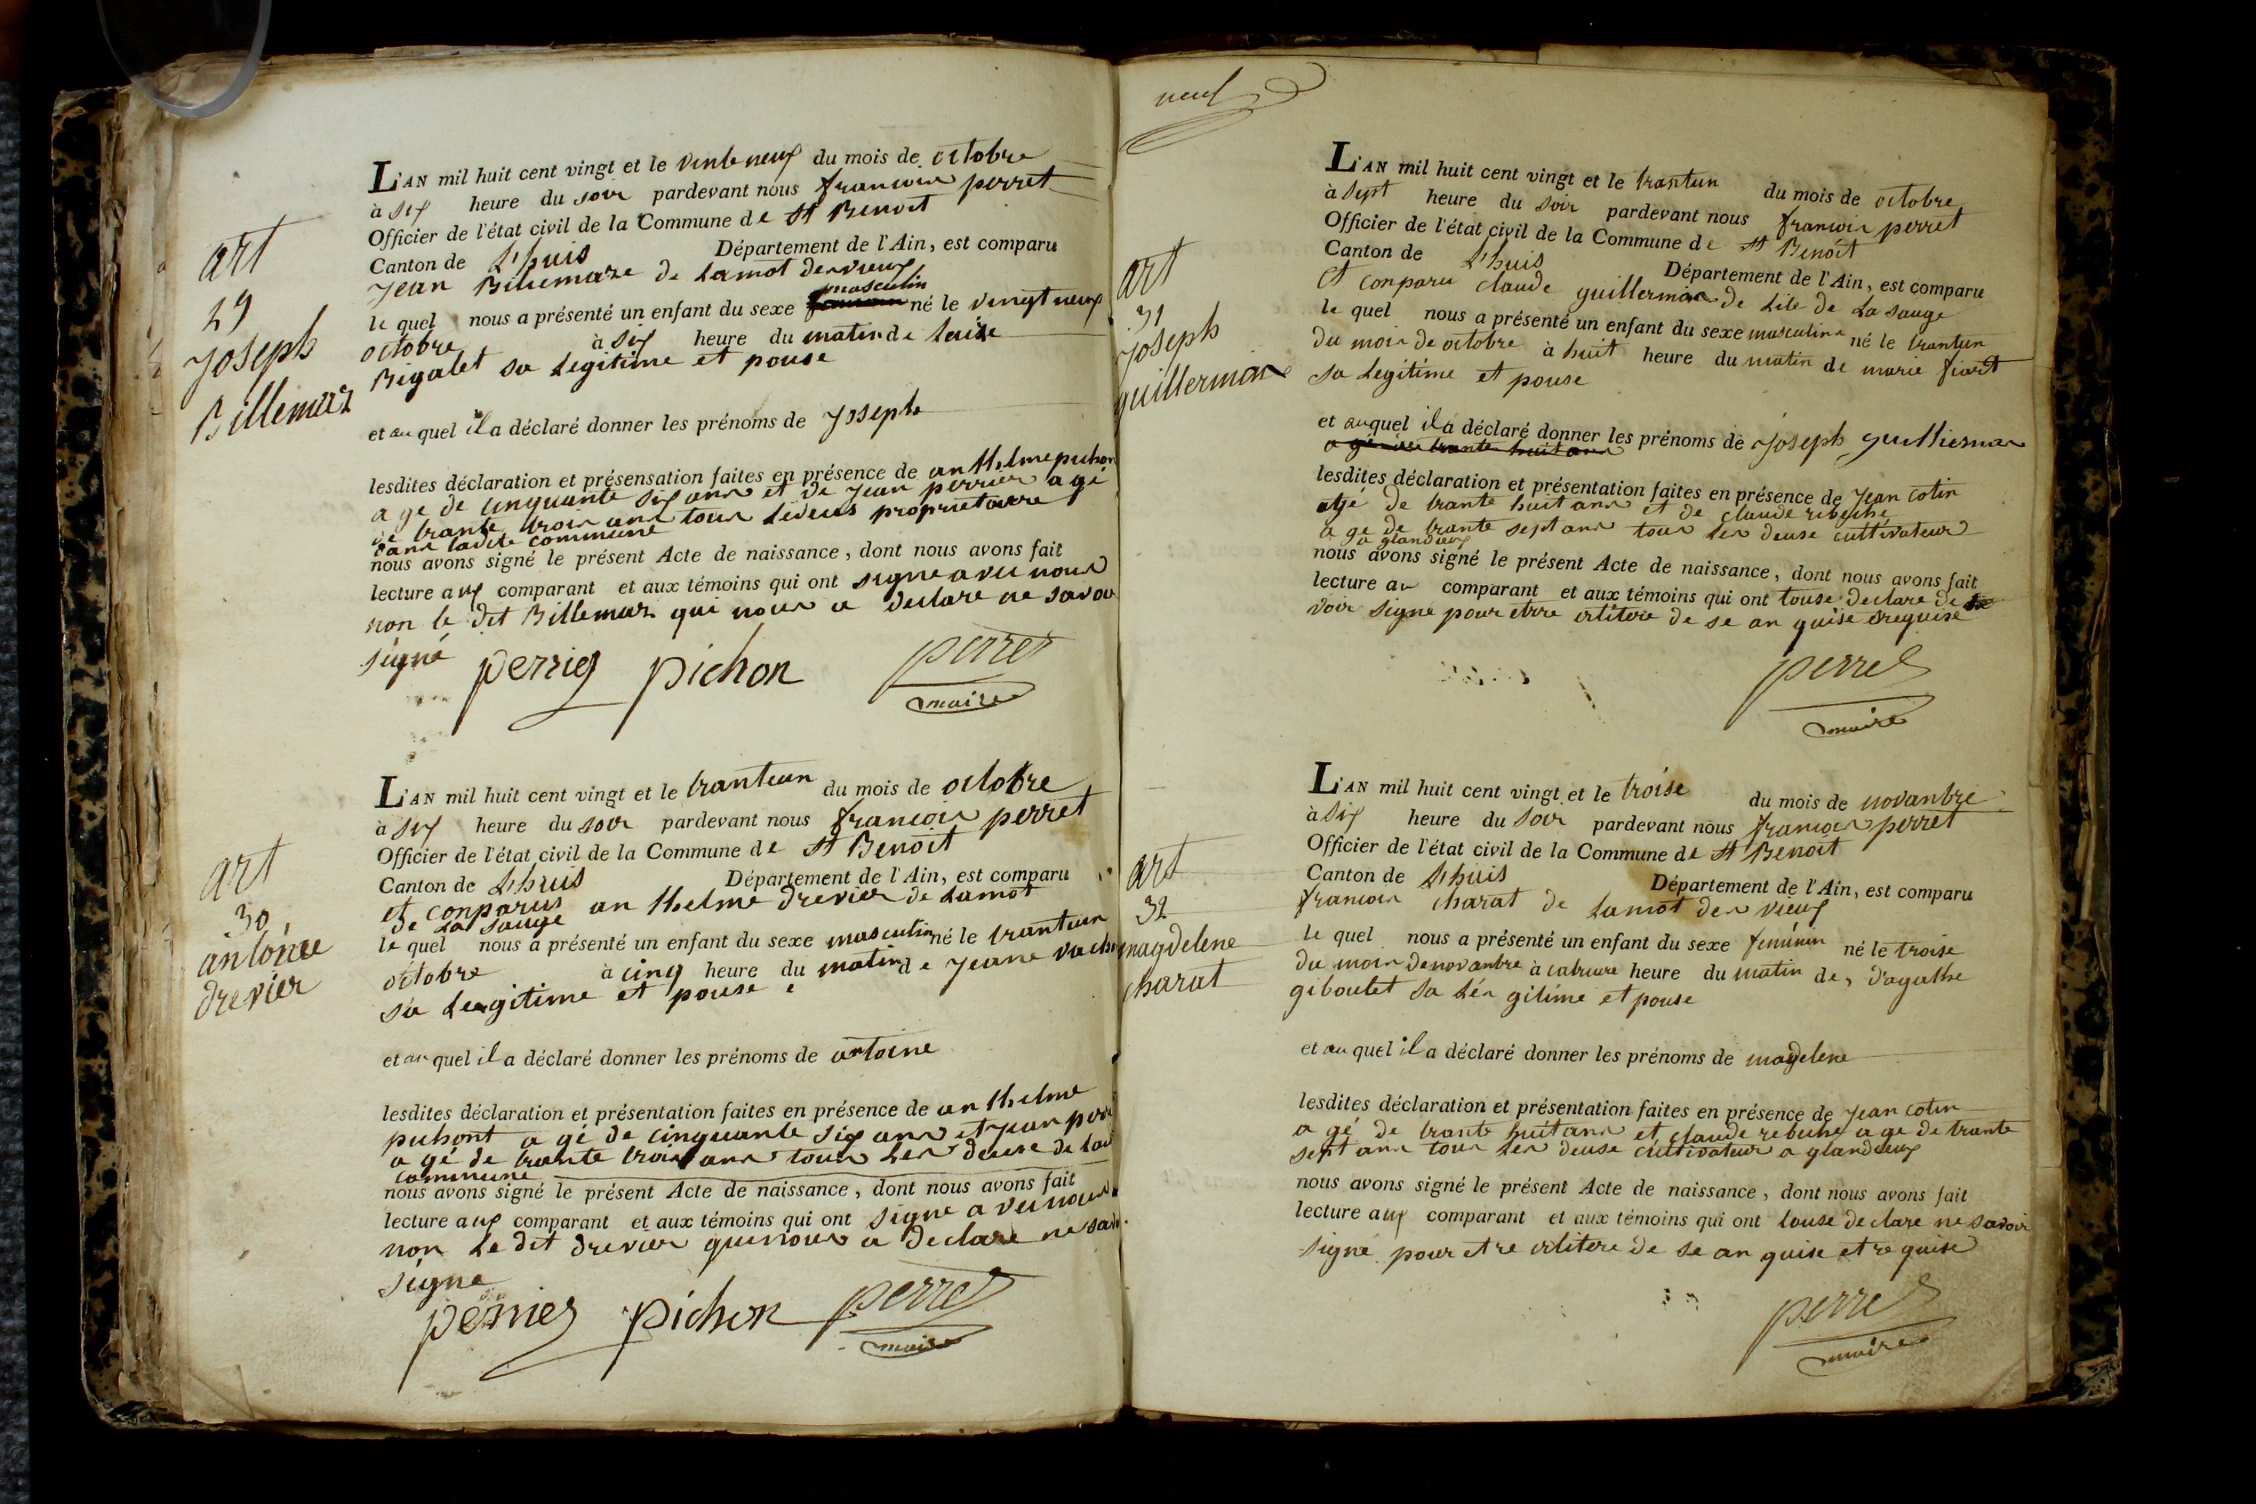 art
29
Joseph
Billemaz
L'AN mil huit cent vingt et le vente neuf du mois de octobre
à six heure du soir pardevant nous francoir perret
Officier de l'état civil de la Commune de St Benoit
Canton de L'huis Département de l'Ain, est comparu
Jean Billemaze de Lamot der vieux
masculin
le quel nous a présenté un enfant du sexe né le vingt neuf
octobre à six heure du matin de Luise
Bigalet sa Legitime et pouse
et au quel il a déclaré donner les prénoms de Joseph
lesdites déclaration et présensation faites en présence de an thelme pichon
a ge de cinquante six anr et de Jean perrier a gé
de trante troir anr tour Lideus proprietaire
danr ladite commune
nous avons signé le présent Acte de naissance, dont nous avons fait
lecture aux comparant et aux témoins qui ont signe a vec nour
non le dit Billemaz qui nour a declare ne savoir
signé
perrier pichon perret
maire
art
30
antoine
drevier
L'AN mil huit cent vingt et le tranteun du mois de octobre
à six heure du soir pardevant nous francoir perret
Officier de l'état civil de la Commune de St Benoit
Canton de L'huis Département de l'Ain, est comparu
et conparus an thelme drevier de Lamot
de La sauge
le quel nous a présenté un enfant du sexe masculin né le tranteun
octobre à cinq heure du matin de Jeane vache
sa Lengitime et pouse
et au quel il a déclaré donner les prénoms de antoine
lesdites déclaration et présentation faites en présence de an thelme
pichont a gé de cinquante six anr et Jean perri
a gé de trante troix anr tour Ler deuse de Lad
commune
nous avons signé le présent Acte de naissance, dont nous avons fait
lecture aux comparant et aux témoins qui ont signe a vec nour
non Le dit drevier quinour a declare ne savoi
signe
perrier pichon perret
maire
neuf
art
31
Joseph
guillerman
L'AN mil huit cent vingt et le trantun du mois de octobre
à sept heure du soir pardevant nous francoir perret
Officier de l'état civil de la Commune de St Benoit
Canton de L'huis Département de l'Ain, est comparu
et conparu claude guillerman de Lile de La sauge
le quel nous a présenté un enfant du sexe masculin né le trantun
du moir de octobre à huit heure du matin de marie fiart
sa Legitime et pouse
et auquel il a déclaré donner les prénoms de Joseph guilliermar
lesdites déclaration et présentation faites en présence de Jean cotin
agé de trante huit anr et de claude ribeche
a ge de trante sept anr tour Ler deuse cultivateur
a glandieux
nous avons signé le présent Acte de naissance, dont nous avons fait
lecture au comparant et aux témoins qui ont touse declare de
voir signe pour etre ilitere de se an quise erequise
perret
maire
art
32
magdelene
charat
L'AN mil huit cent vingt et le troise du mois de novanbre
à six heure du soir pardevant nous francoir perret
Officier de l'état civil de la Commune de St Benoit
Canton de L'huis Département de l'Ain, est comparu
francoir charat de Lamot der vieux
le quel nous a présenté un enfant du sexe feminin né le troise
du moir denovanbre à catruure heure du matin de, d'agathe
giboulet sa Lén gitime et pouse
et au quel il a déclaré donner les prénoms de magdelene
lesdites déclaration et présentation faites en présence de Jean cotin
a gé de trante huit anr et claude rebeche a ge de trante
sept anr tour Ler deuse cultivateur a glandieux
nous avons signé le présent Acte de naissance, dont nous avons fait
lecture aux comparant et aux témoins qui ont touse declare ne savoir
signé pour et re ilitere de se an quise et re quise
perret
maire